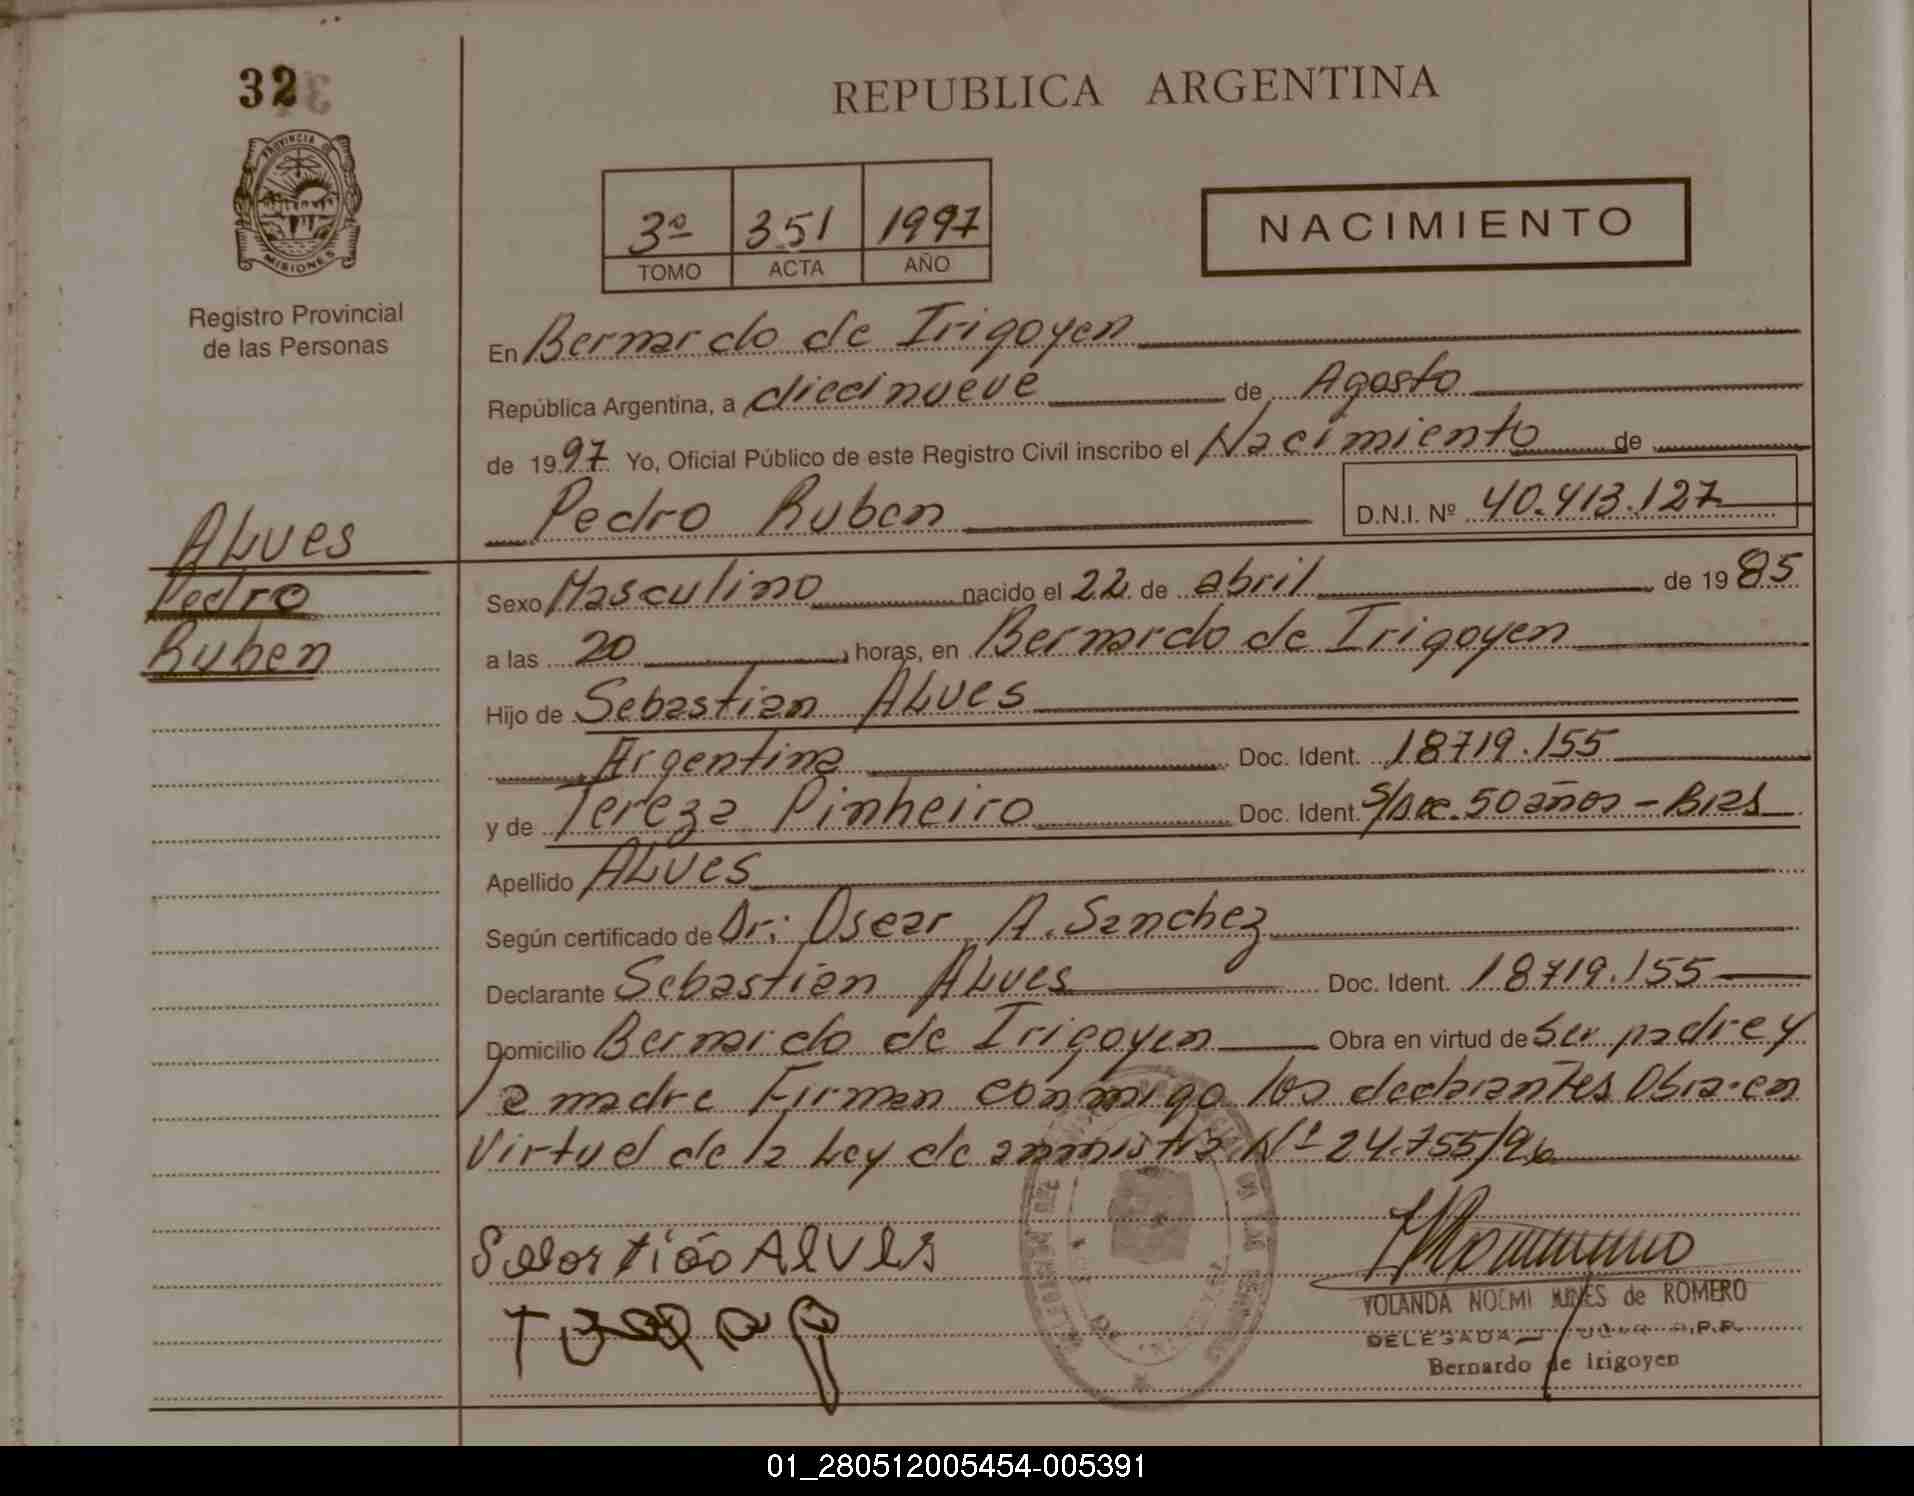 32
PROVINCIA DE
MISIONES
Registro Provincial
de las Personas
REPUBLICA ARGENTINA
3º 351 1997
TOMO ACTA AÑO
NACIMIENTO
En Bernardo de Irigoyen
República Argentina, a diecinueve de Agosto
de 1997 Yo, Oficial Público de este Registro Civil inscribo el Nacimiento de
Pedro Ruben D.N.I. Nº 40.413.127
ALves
Pedro
Ruben
Sexo Masculino nacido el 22 de abril de 1985
a las 20 horas, en Bernardo de Irigoyen
Hijo de Sebastian ALves
Argentina Doc. Ident. 18719.155
y de Tereza Pinheiro Doc. Ident. S/Doc. 50 años - Bras
Apellido ALves
Según certificado de Dr: Oscar A. Sanchez
Declarante Sebastian ALves Doc. Ident. 18719.155
Domicilio Bernardo de Irigoyen Obra en virtud de Ser padre y
la madre Firman conmigo los declarantes Obra en
Virtud de la Ley de amnistia Nº 24.755/96
ALVES
YOLANDA NOEMI de ROMERO
DELEGADA
Bernardo de Irigoyen
01_280512005454-005391